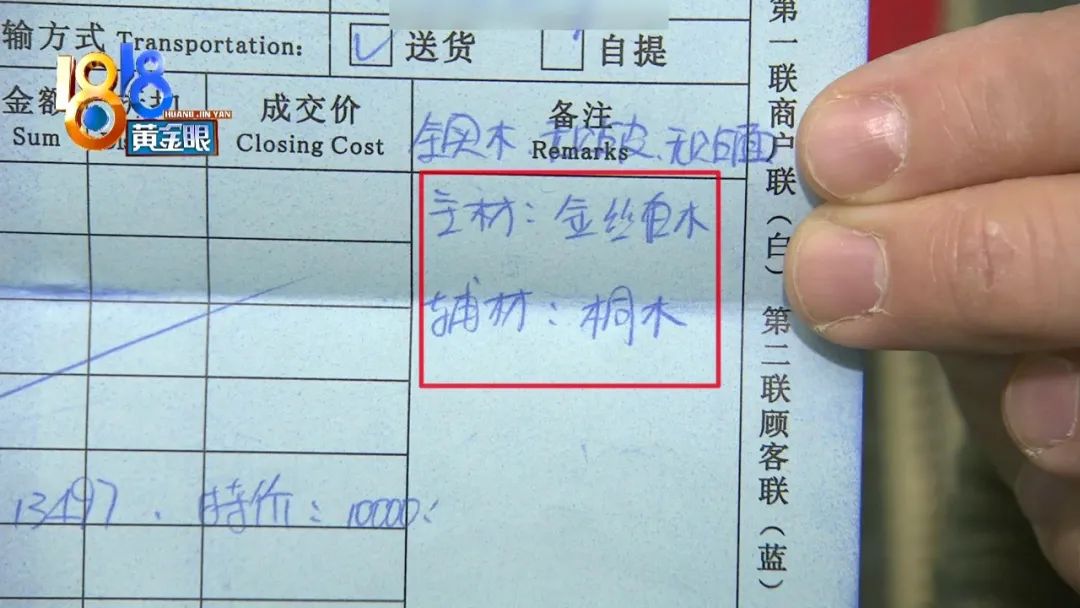 输方式 Transportation: 送货 自提
1818
HUANG JIN YAN
黄金眼
金额 成交价 备注
Sum Closing Cost Remarks
全实木、无贴皮、无贴面
主材：金丝白木
辅材：桐木
13497. 特价：10000:
第一联商户联（白） 第二联顾客联（蓝）